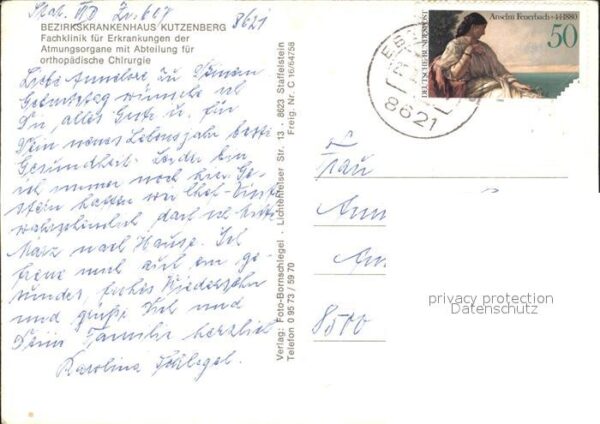 Stat. III D Zi. 607
8621
BEZIRKSKRANKENHAUS KUTZENBERG
Fachklinik für Erkrankungen der
Atmungsorgane mit Abteilung für
orthopädische Chirurgie
Liebe Annelore zu Deinem
Geburtstag wünsche ich
Dir, alles Gute u. für
Dein neues Lebensjahr beste
Gesundheit. Leider bin
ich immer noch hier. Ge-
stern hatten wir Chef-Visite
wahrscheinlich darf ich Mitte
März nach Hause. Ich
freue mich auf ein ge-
sundes, frohes Wiedersehn
und grüße Dich und
Deine Familie herzlich
Karolina
Verlag: Foto-Bornschlegel · Lichtenfelser Str. 13 · 8623 Staffelstein
Telefon 0 95 73 / 59 70
Freig. Nr. C 16/64758
Anselm Feuerbach +4·1·1880
50
DEUTSCHE BUNDESPOST
8621
Frau
Ann
An
8500
privacy protection
Datenschutz